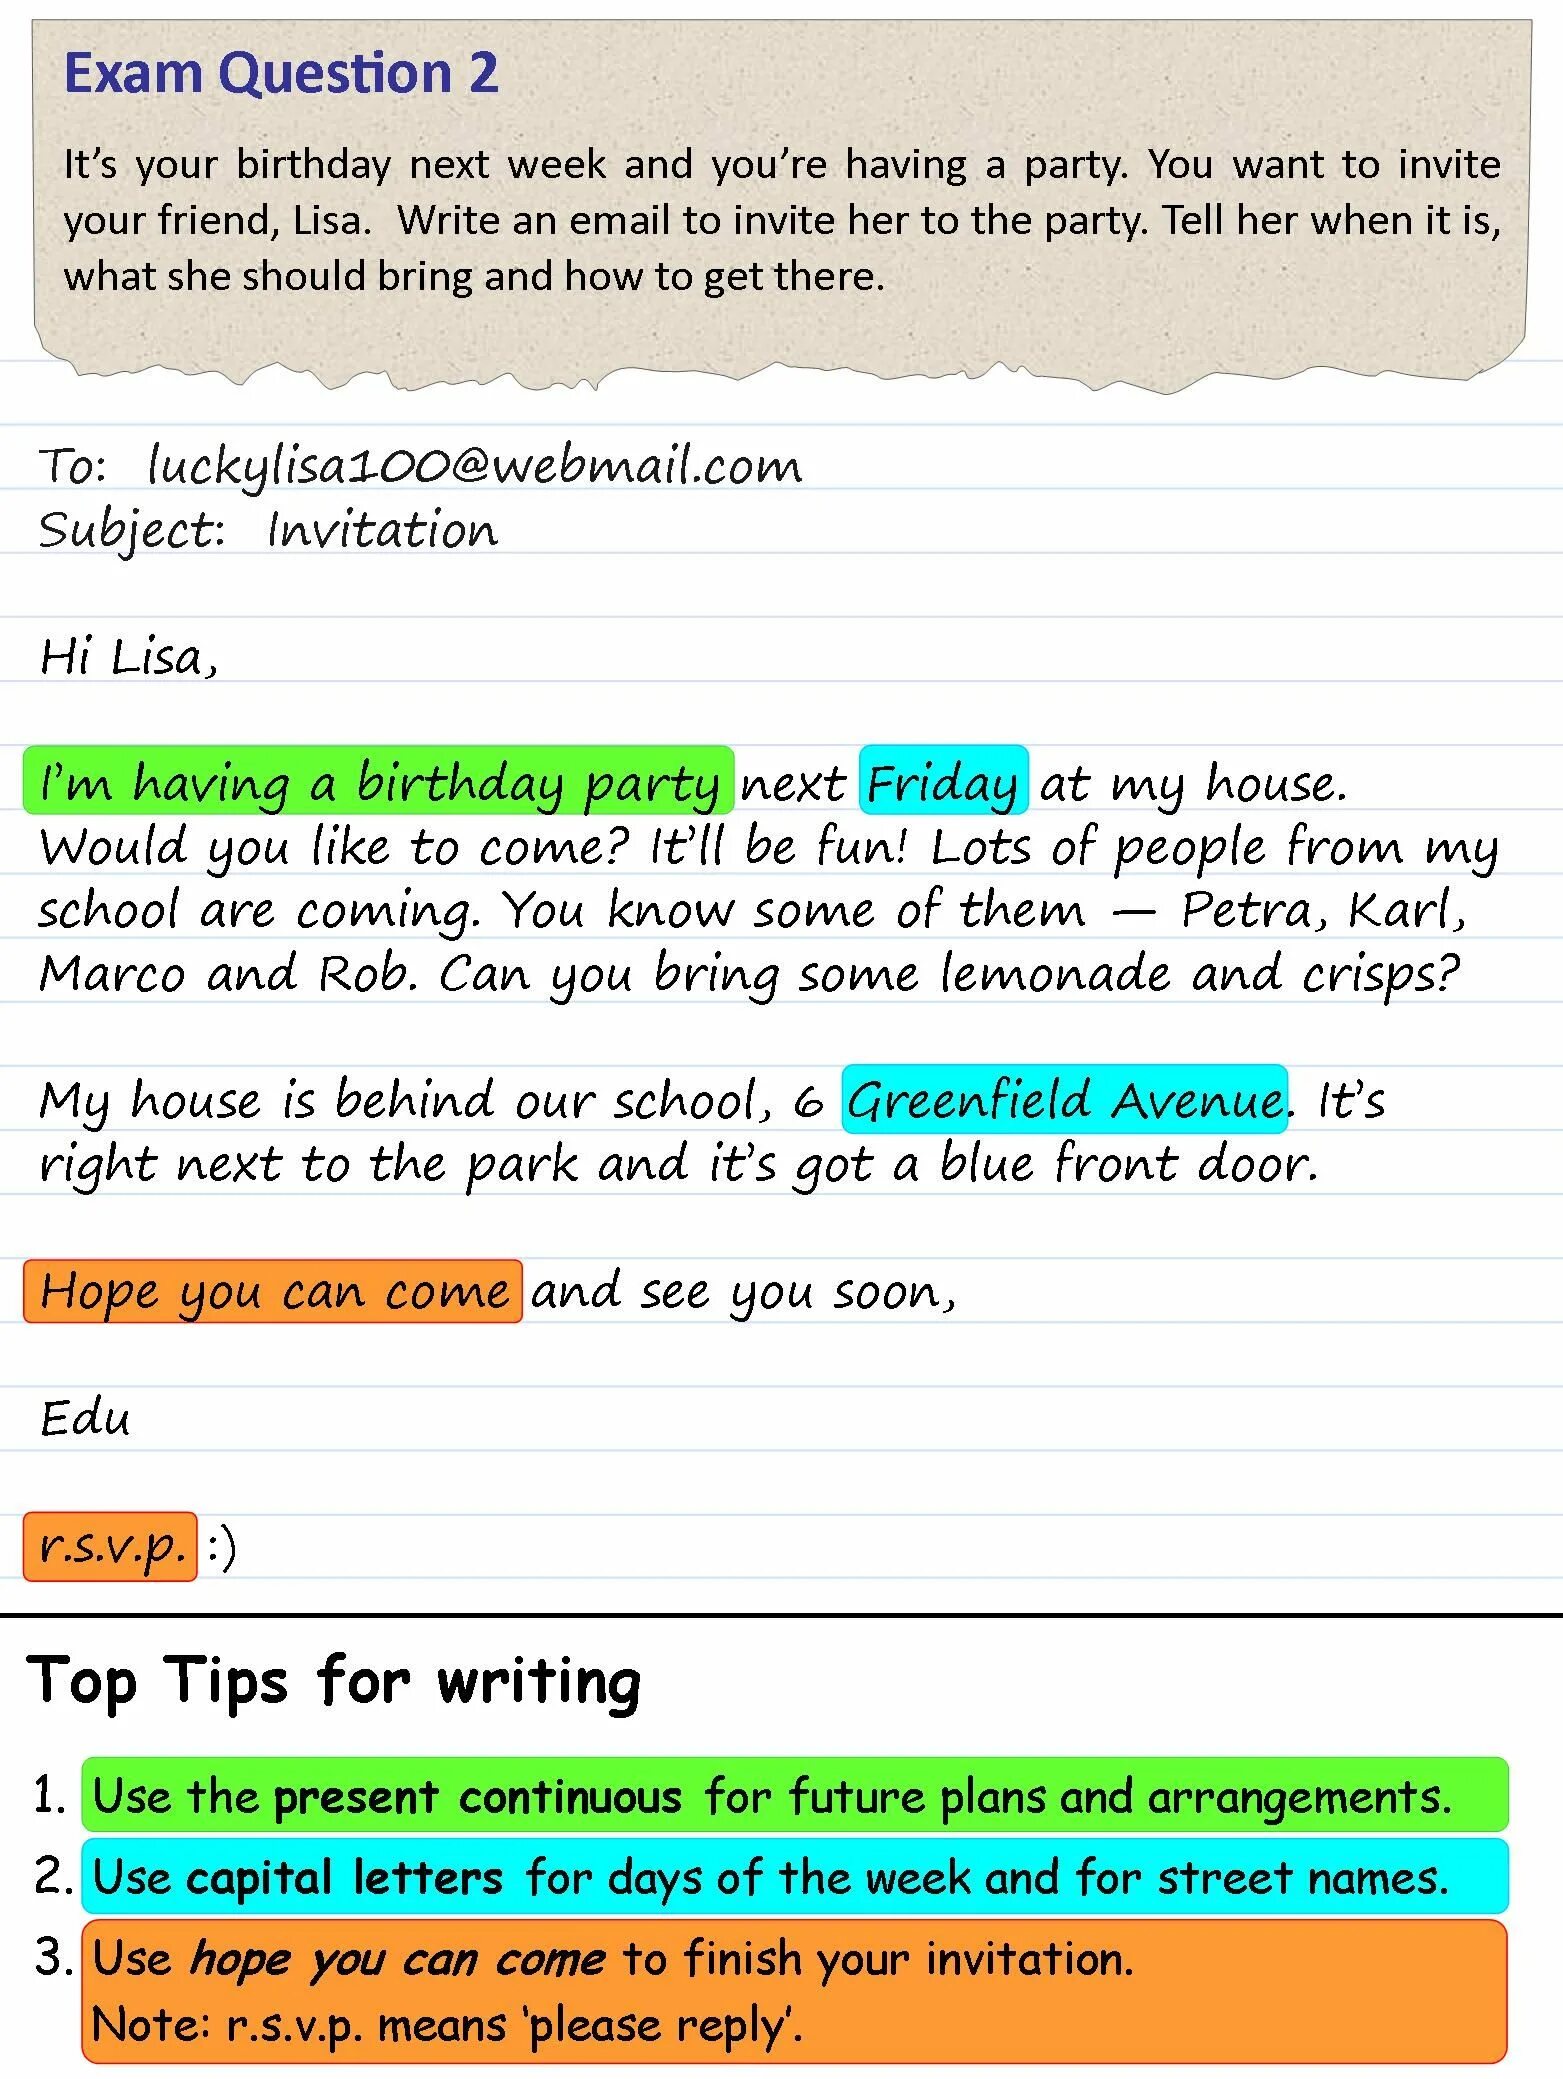 Exam Question 2
It’s your birthday next week and you’re having a party. You want to invite
your friend, Lisa. Write an email to invite her to the party. Tell her when it is,
what she should bring and how to get there.
To: luckylisa100@webmail.com
Subject: Invitation
Hi Lisa,
I’m having a birthday party next Friday at my house.
Would you like to come? It’ll be fun! Lots of people from my
school are coming. You know some of them — Petra, Karl,
Marco and Rob. Can you bring some lemonade and crisps?
My house is behind our school, 6 Greenfield Avenue. It’s
right next to the park and it’s got a blue front door.
Hope you can come and see you soon,
Edu
r.s.v.p. :)
Top Tips for writing
1. Use the present continuous for future plans and arrangements.
2. Use capital letters for days of the week and for street names.
3. Use hope you can come to finish your invitation.
Note: r.s.v.p. means ‘please reply’.